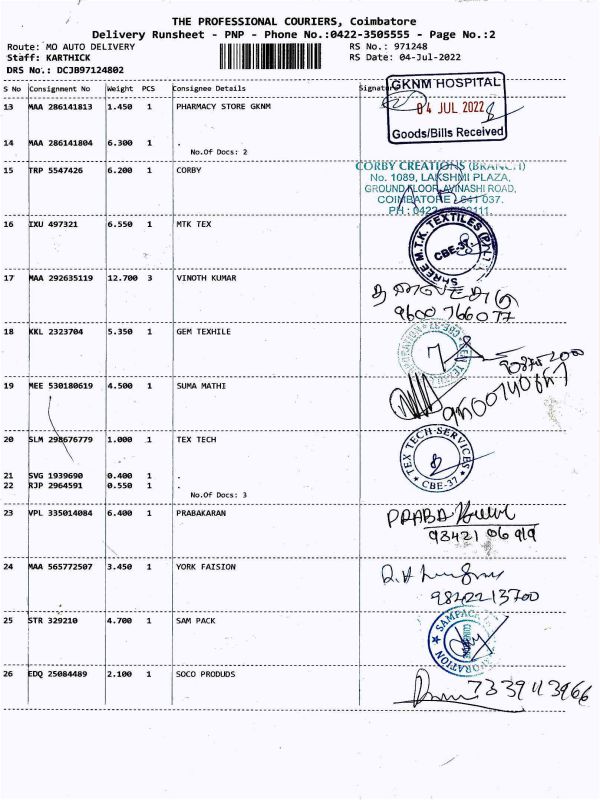 THE PROFESSIONAL COURIERS, Coimbatore
Delivery Runsheet - PNP - Phone No.:0422-3505555 - Page No.:2
Route: MO AUTO DELIVERY RS No.: 971248
Staff: KARTHICK RS Date: 04-Jul-2022
DRS No.: DCJB97124802
S No Consignment No Weight PCS Consignee Details Signat
GKNM HOSPITAL
13 MAA 286141813 1.450 1 PHARMACY STORE GKNM
04 JUL 2022
Goods/Bills Received
14 MAA 286141804 6.300 1 .
No.Of Docs: 2
15 TRP 5547426 6.200 1 CORBY
CORBY CREATIONS (BRANCH)
No. 1089, LAKSHMI PLAZA,
GROUND FLOOR, AVINASHI ROAD,
COIMBATORE - 641 037.
PH : 0422
16 IXU 497321 6.550 1 MTK TEX
SHREE M.T.K. TEXTILES (P) LTD
CBE-37
17 MAA 292635119 12.700 3 VINOTH KUMAR
9600766077
18 KKL 2323704 5.350 1 GEM TEXHILE
19 MEE 530180619 4.500 1 SUMA MATHI
20 SLM 298676779 1.000 1 TEX TECH
TEX TECH SERVICES
CBE-37
21 SVG 1939690 0.400 1 .
22 RJP 2964591 0.550 1 .
No.Of Docs: 3
23 VPL 335014084 6.400 1 PRABAKARAN
PRABA
98421 06919
24 MAA 565772507 3.450 1 YORK FAISION
9842213700
25 STR 329210 4.700 1 SAM PACK
SAMPACK
CORPORATION
26 EDQ 25084489 2.100 1 SOCO PRODUDS
7339113966